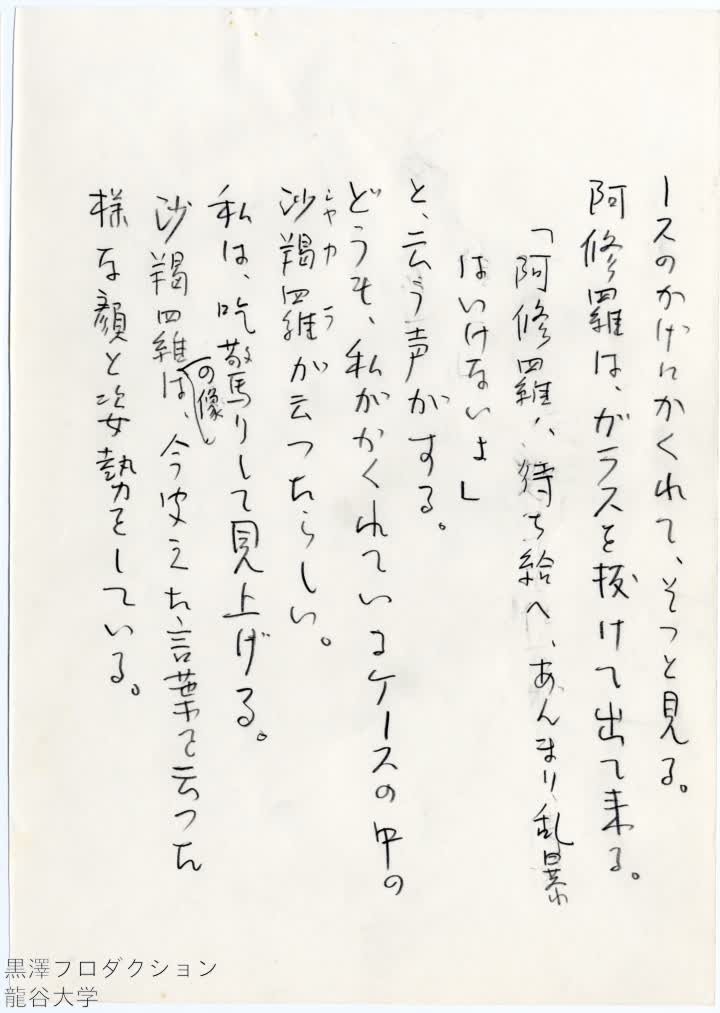 ースのかげにかくれて、そつと見る。
阿修羅は、ガラスを抜けて出て来る。
「阿修羅八、待ち給へ、あんまり乱暴
はいけないよ」
と、云う声がする。
どうも、私がかくれているケースの中の
沙羯羅が云つたらしい。
シヤカラ
私は、吃驚りして見上げる。
沙羯羅は、今聞えた、言葉を云つた
の像
様な顔と姿勢をしている。
黒澤プロダクション
龍谷大学